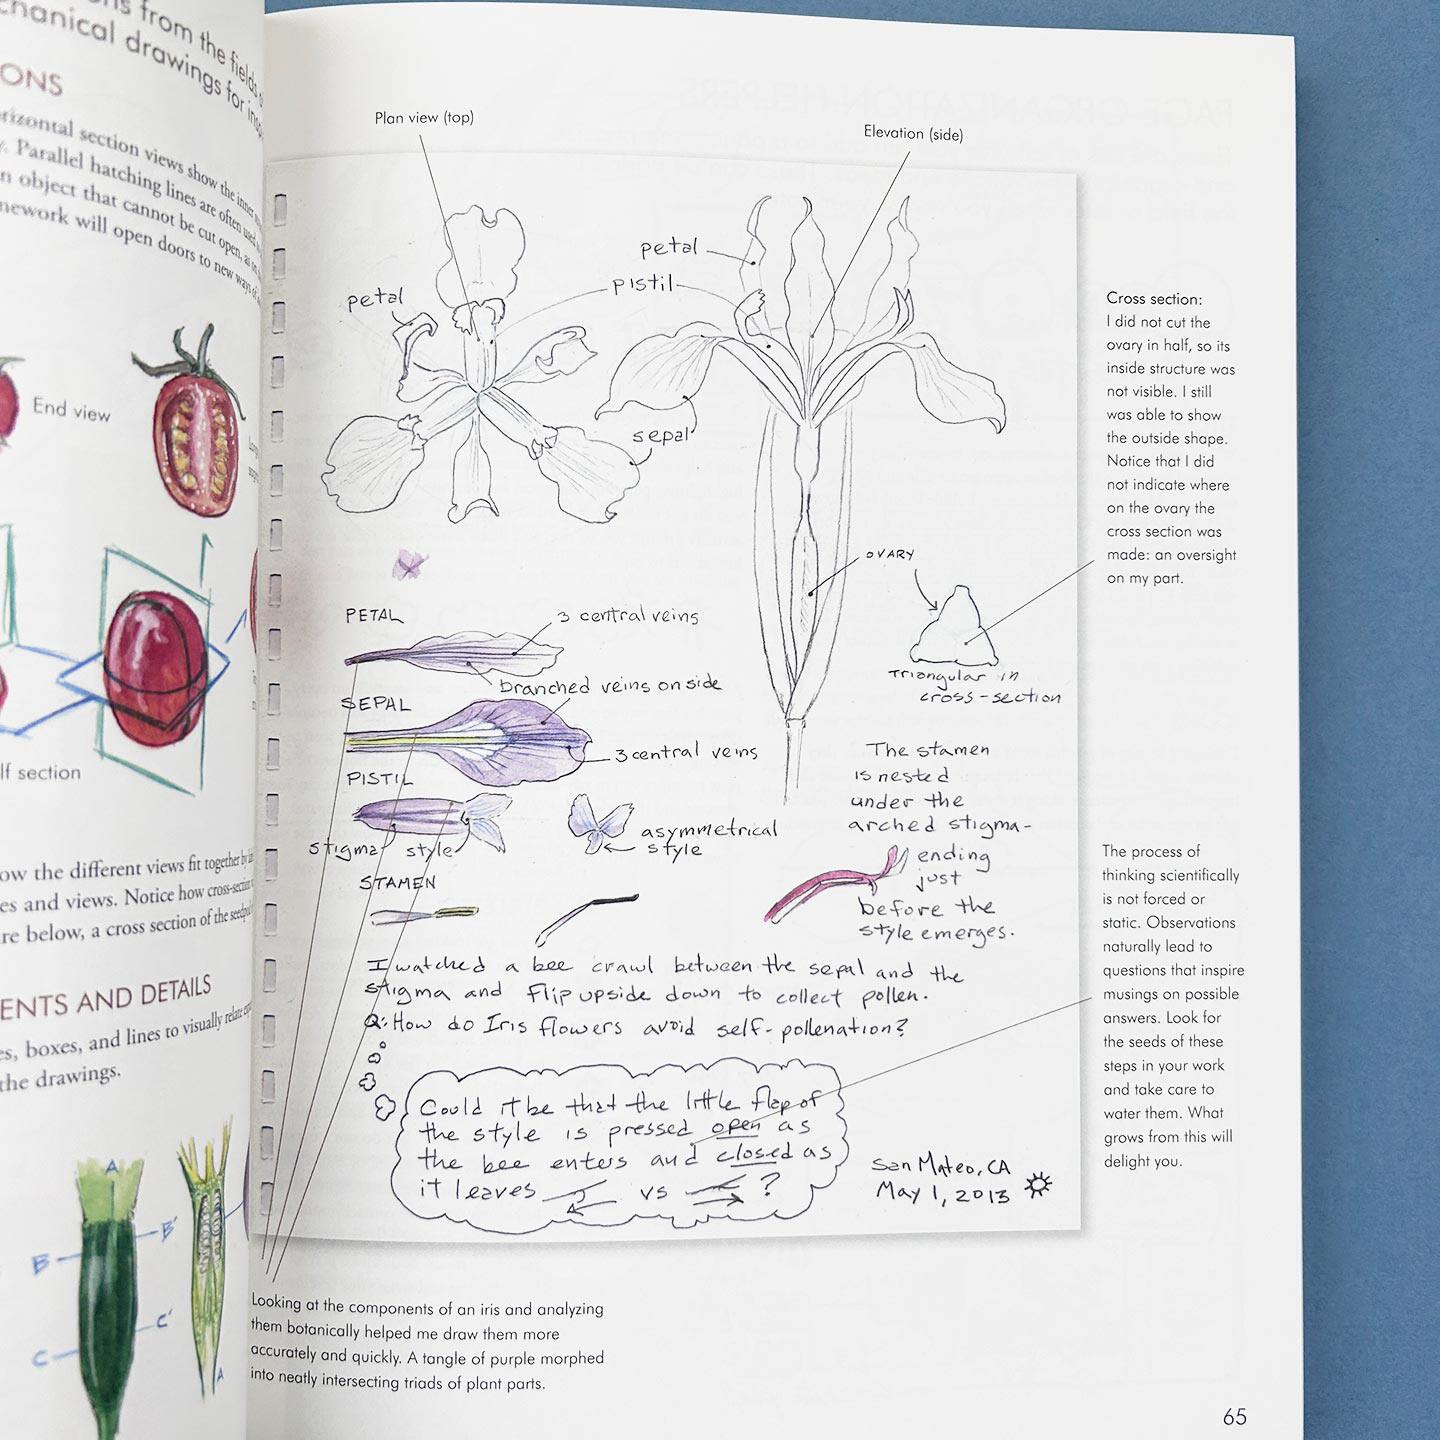 ns from the fields
chanical drawings for
ONS
rizontal section views show the inner
. Parallel hatching lines are often used
n object that cannot be cut open, as
nework will open doors to new ways of
End view
lf section
ow the different views fit together by
es and views. Notice how cross-section
re below, a cross section of the seedpod
ENTS AND DETAILS
es, boxes, and lines to visually relate
the drawings.
A
B
B'
C'
C
A
Plan view (top)
Elevation (side)
petal
pistil
petal
sepal
OVARY
Triangular in
cross-section
PETAL
3 central veins
branched veins on side
SEPAL
3 central veins
PISTIL
stigma
style
asymmetrical
style
STAMEN
The stamen
is nested
under the
arched stigma-
ending
just
before the
style emerges.
I watched a bee crawl between the sepal and the
stigma and flip upside down to collect pollen.
Q: How do Iris flowers avoid self-pollenation?
Could it be that the little flap of
the style is pressed open as
the bee enters and closed as
it leaves vs ?
San Mateo, CA
May 1, 2013
Cross section:
I did not cut the
ovary in half, so its
inside structure was
not visible. I still
was able to show
the outside shape.
Notice that I did
not indicate where
on the ovary the
cross section was
made: an oversight
on my part.
The process of
thinking scientifically
is not forced or
static. Observations
naturally lead to
questions that inspire
musings on possible
answers. Look for
the seeds of these
steps in your work
and take care to
water them. What
grows from this will
delight you.
Looking at the components of an iris and analyzing
them botanically helped me draw them more
accurately and quickly. A tangle of purple morphed
into neatly intersecting triads of plant parts.
65